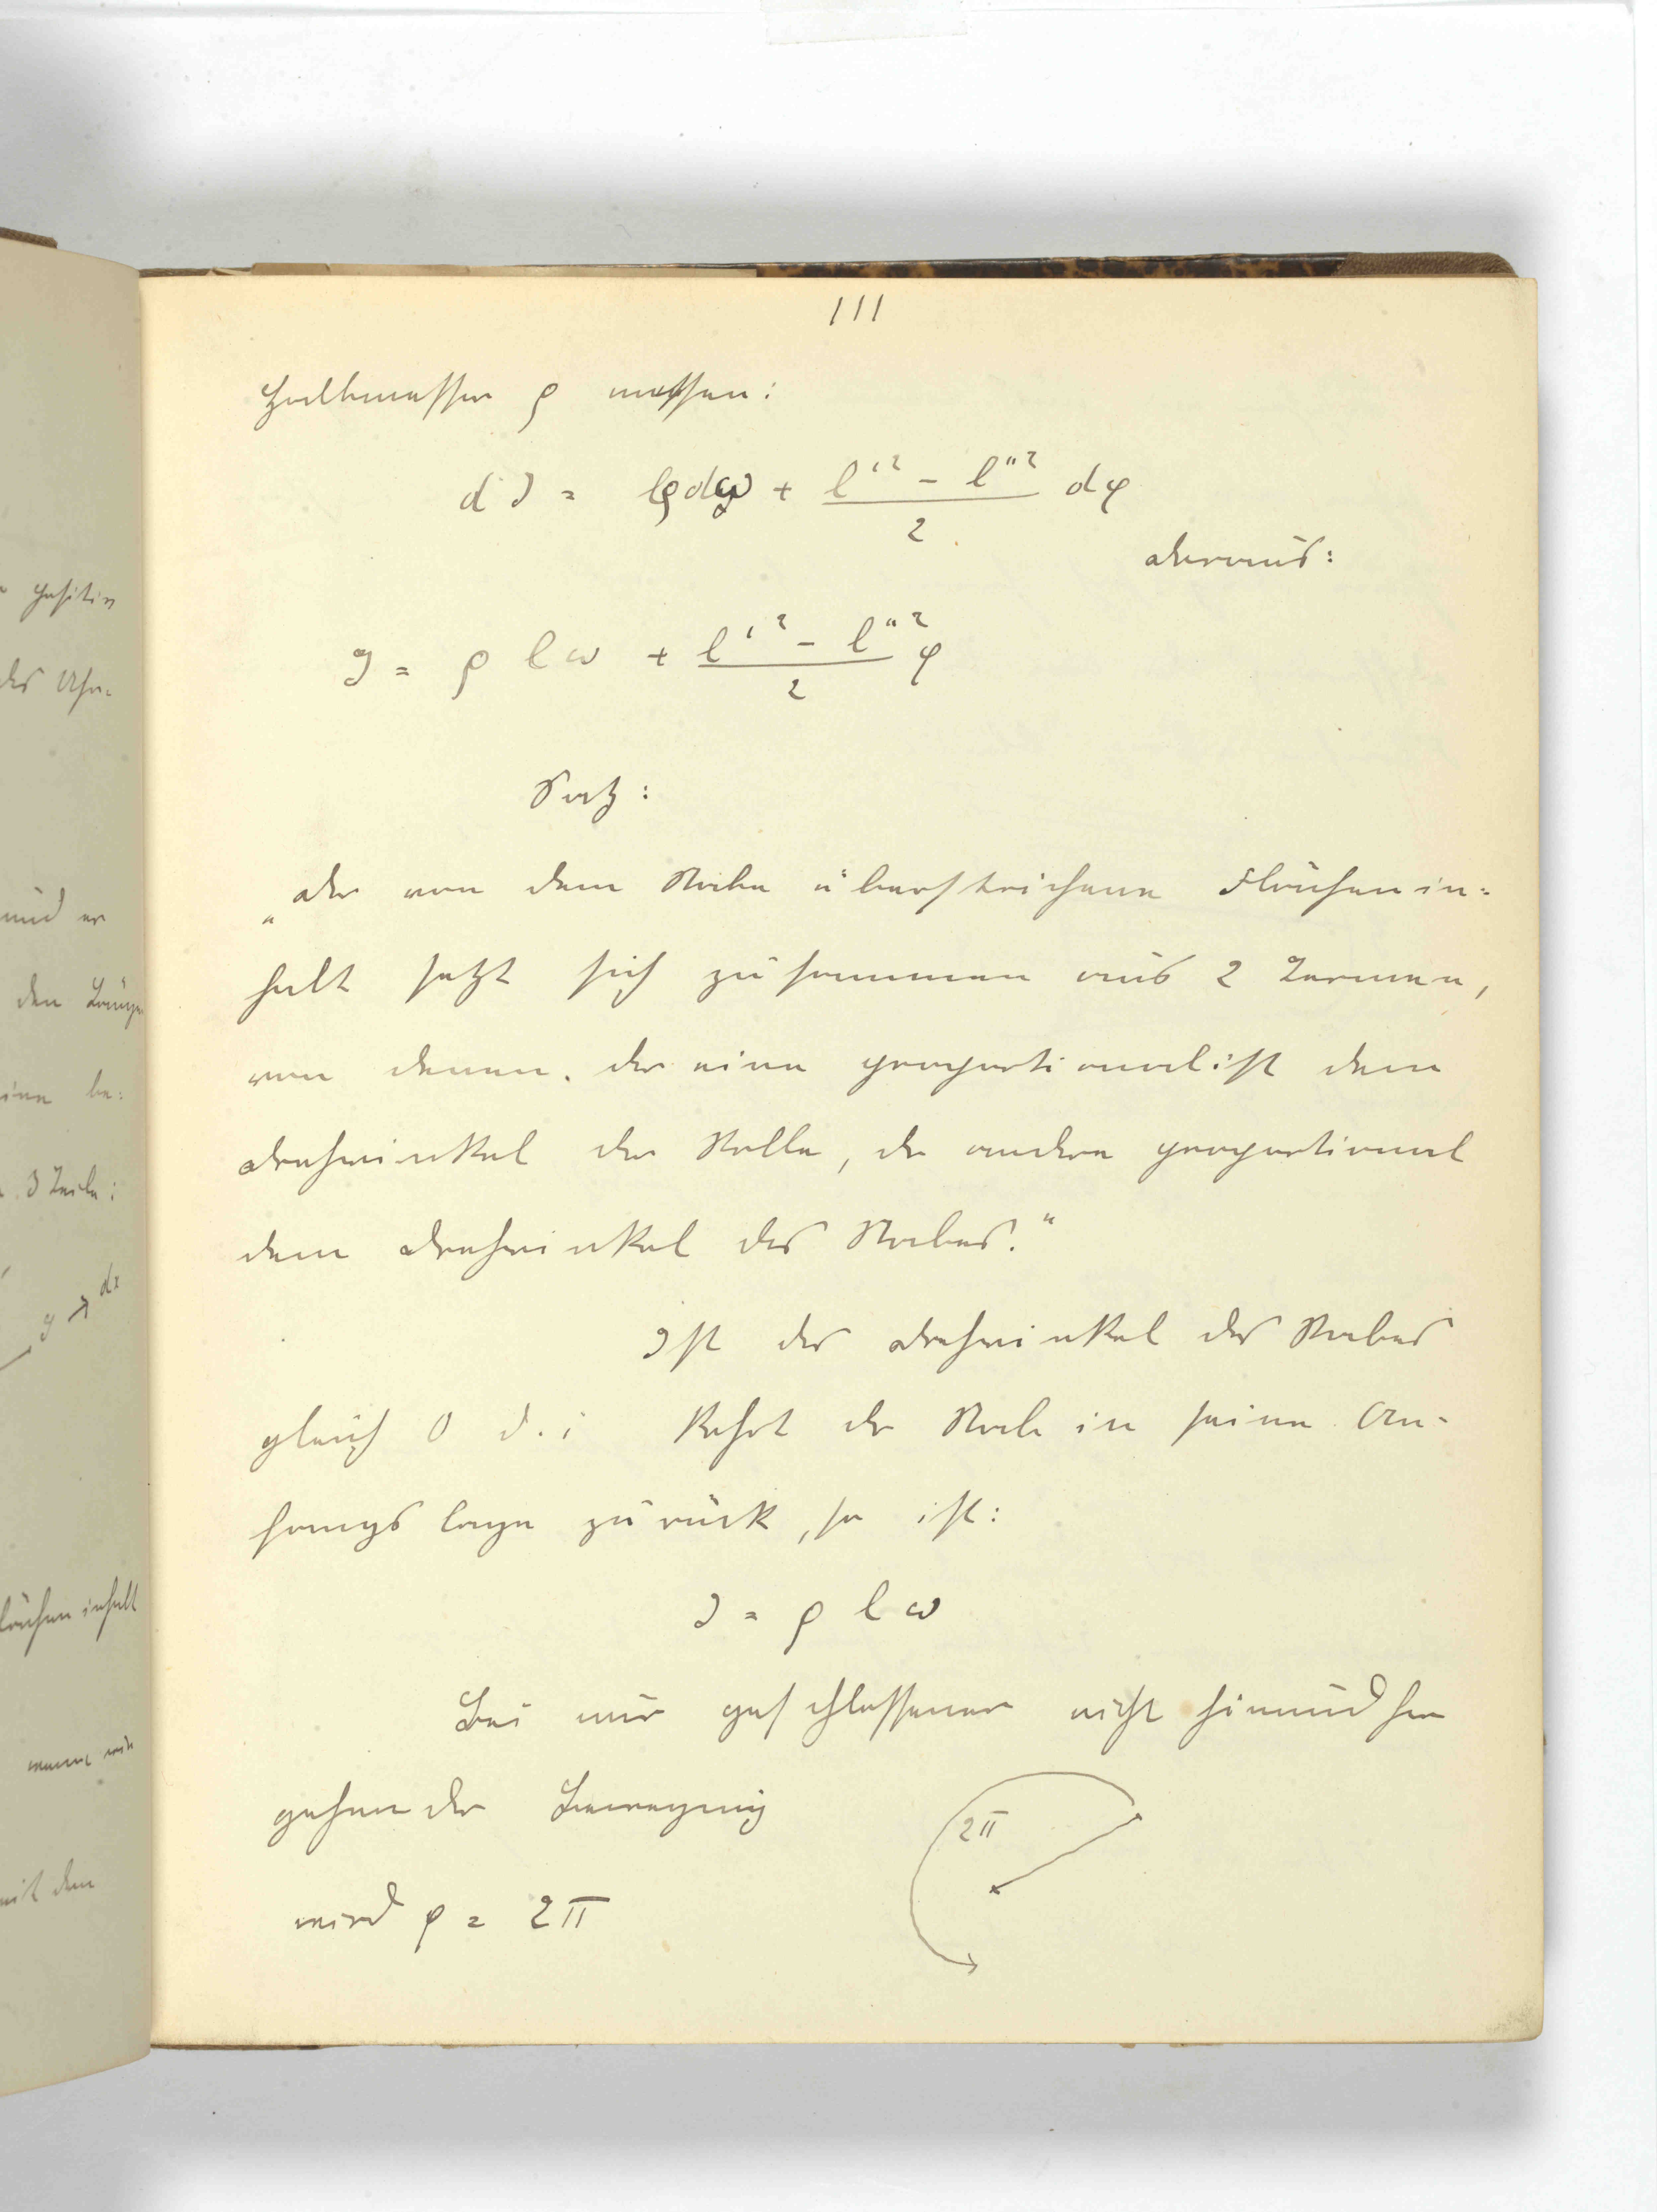 111
Halbmesser ρ messen:
dJ = lρdω + (l'² - l''²)/2 dφ
daraus:
J = ρ l ω + (l'² - l''²)/2 φ
Satz:
„Der von dem Stabe überstrichene Flächenin-
halt setzt sich zusammen aus 2 Termen,
von denen der eine proportional ist dem
Drehwinkel der Rolle, der andere proportional
dem Drehwinkel des Stabes."
Ist der Drehwinkel des Stabes
gleich 0 d. i. kehrt der Stab in seine An-
fangslage zurück, so ist:
J = ρ l ω
Bei nur geschlossener nicht hinundher
gehender Bewegung
2π
wird φ = 2π
positiv
des Uhr-
und er
den Länge
eine be-
3 Teile:
dx
y
flächeninhalt
wenn wir
mit dem